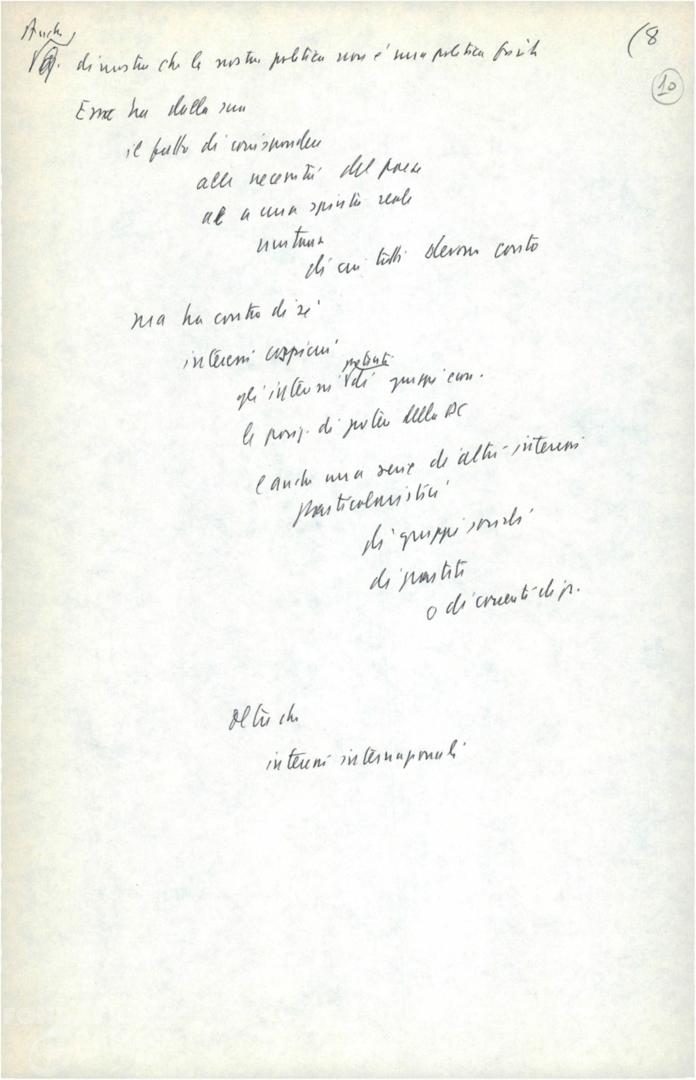 Anche
(8
10
dimostra che la nostra politica non è una politica facile
Essa ha dalla sua
il fatto di corrispondere
alle necessità del paese
e a una spinta reale
unitaria
di cui tutti devono conto
ma ha contro di sé
interessi cospicui
potenti
gli interessi di gruppi econ.
le posiz. di potere della DC
e anche una serie di altri interessi
particolaristici
di gruppi sociali
di partiti
o di correnti di p.
Oltre che
interessi internazionali